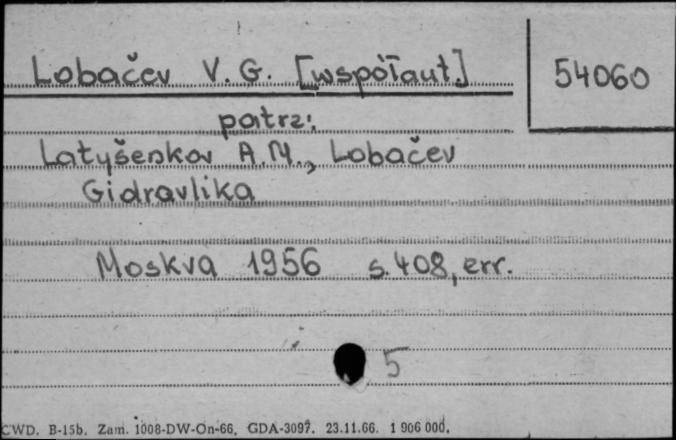 Lobačev V. G. [współaut.]
54060
patrz:
Latyšenkov A.M., Lobačev
Gidravlika
Moskva 1956 s. 408, err.
5
CWD. B-15b. Zam. 1008-DW-On-66. GDA-3097. 23.11.66. 1 906 000.